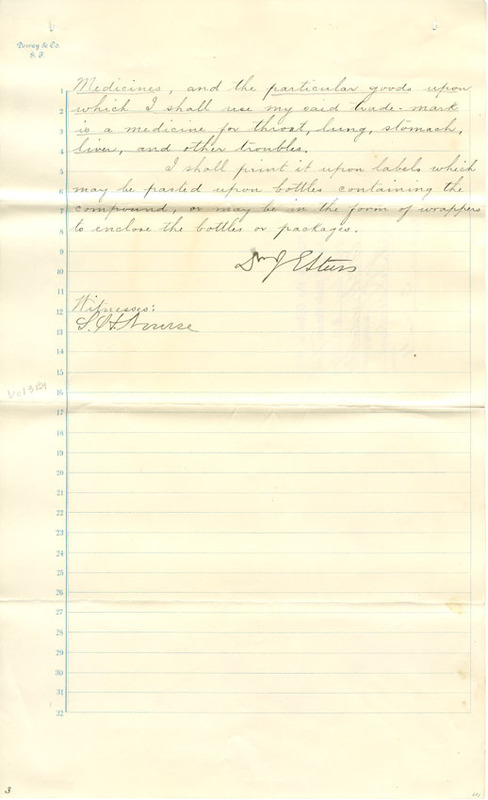 Dewey & Co.
S. F.
1 Medicines, and the particular goods upon
2 which I shall use my said trade-mark
3 is a medicine for throat, lung, stomach,
4 liver, and other troubles.
5 I shall print it upon labels which
6 may be pasted upon bottles containing the
7 compound, or may be in the form of wrappers
8 to enclose the bottles or packages.
9
10 Dr J E
11
12 Witnesses:
13 S. H. Nourse
14
15
16
17
18
19
20
21
22
23
24
25
26
27
28
29
30
31
32
3